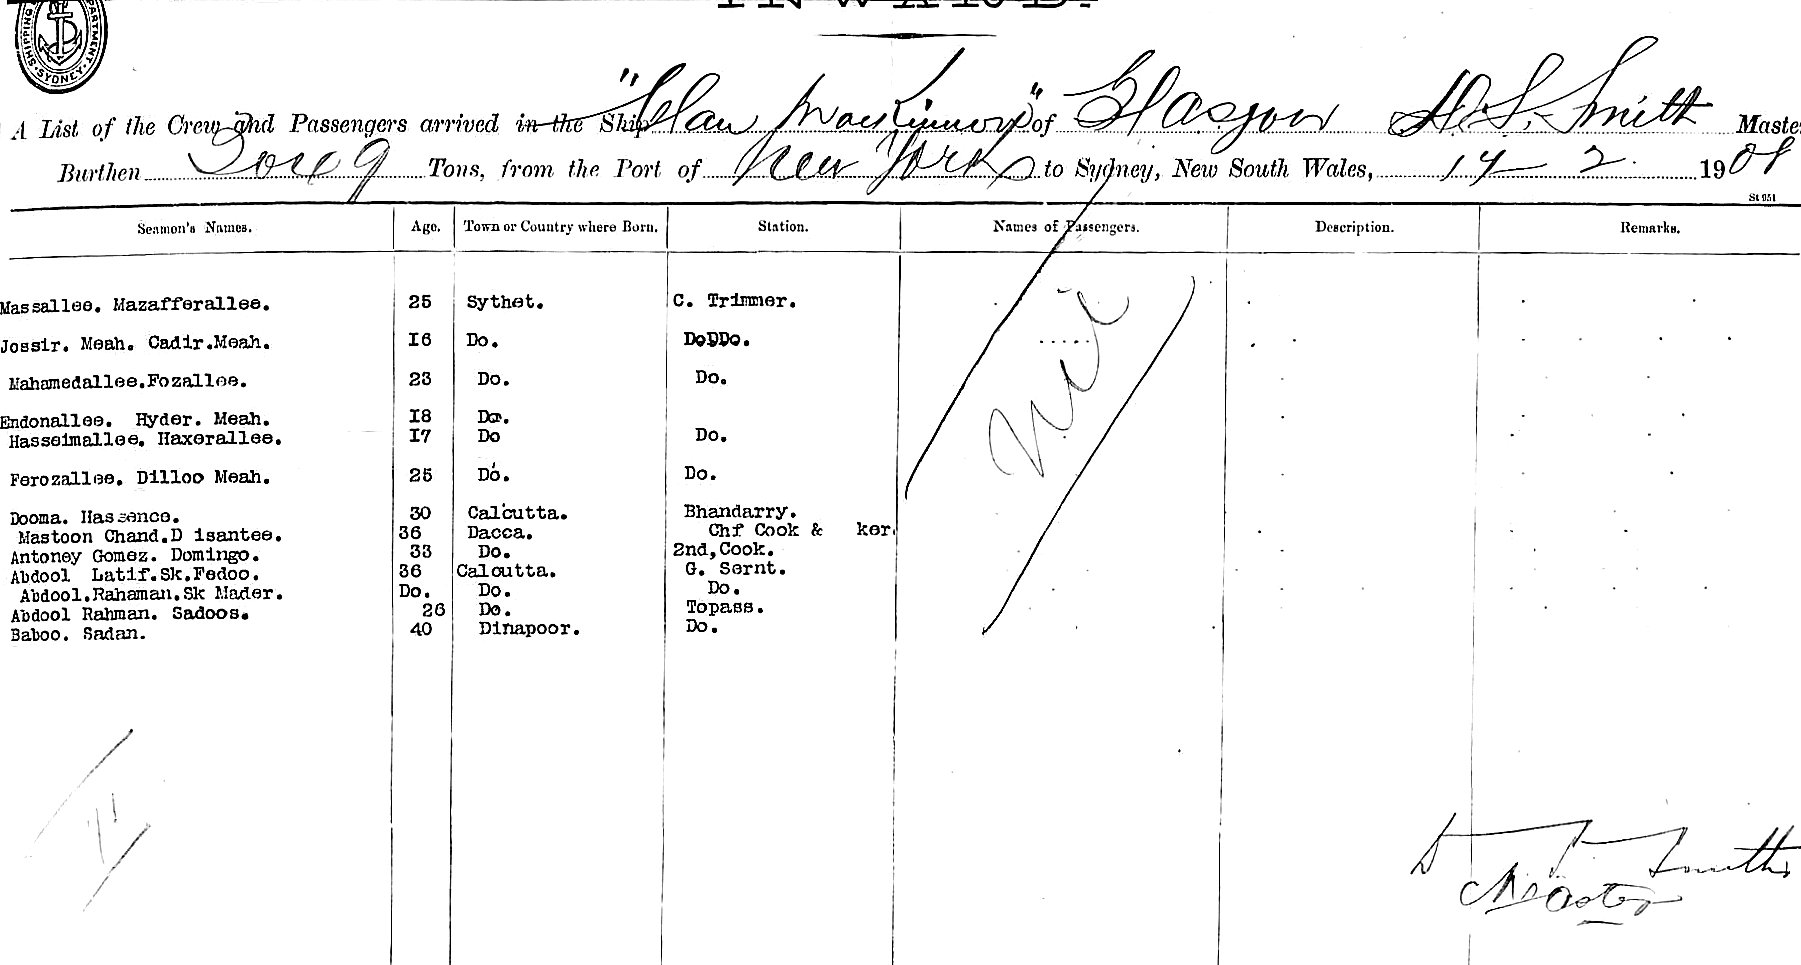 INWARD.
SHIPPING DEPARTMENT. SYDNEY
A List of the Crew and Passengers arrived in the Ship "Clan MacKinnon" of Glasgow D. S. Smith Maste
Burthen Tons, from the Port of New York to Sydney, New South Wales, 14 - 2. 1908
St 951
Seamen's Names. Age. Town or Country where Born. Station. Names of Passengers. Description. Remarks.
Massallee. Mazafferallee. 25 Sythet. C. Trimmer.
Jossir. Meah. Cadir.Meah. I6 Do. DoDDo.
Mahamedallee.Fozallee. 23 Do. Do.
Nil
Endonallee. Hyder. Meah. I8 Do.
Hasseimallee. Haxerallee. I7 Do Do.
Ferozallee. Dilloo Meah. 25 Do. Do.
Dooma. Hassence. 30 Calcutta. Bhandarry.
Mastoon Chand.D isantee. 36 Dacca. Chf Cook & ker.
Antoney Gomez. Domingo. 33 Do. 2nd,Cook.
Abdool Latif.Sk.Fedoo. 36 Calcutta. G. Sernt.
Abdool.Rahaman.Sk Mader. Do. Do. Do.
Abdool Rahman. Sadoos. 26 Do. Topass.
Baboo. Sadan. 40 Dinapoor. Do.
D S Smith
Master